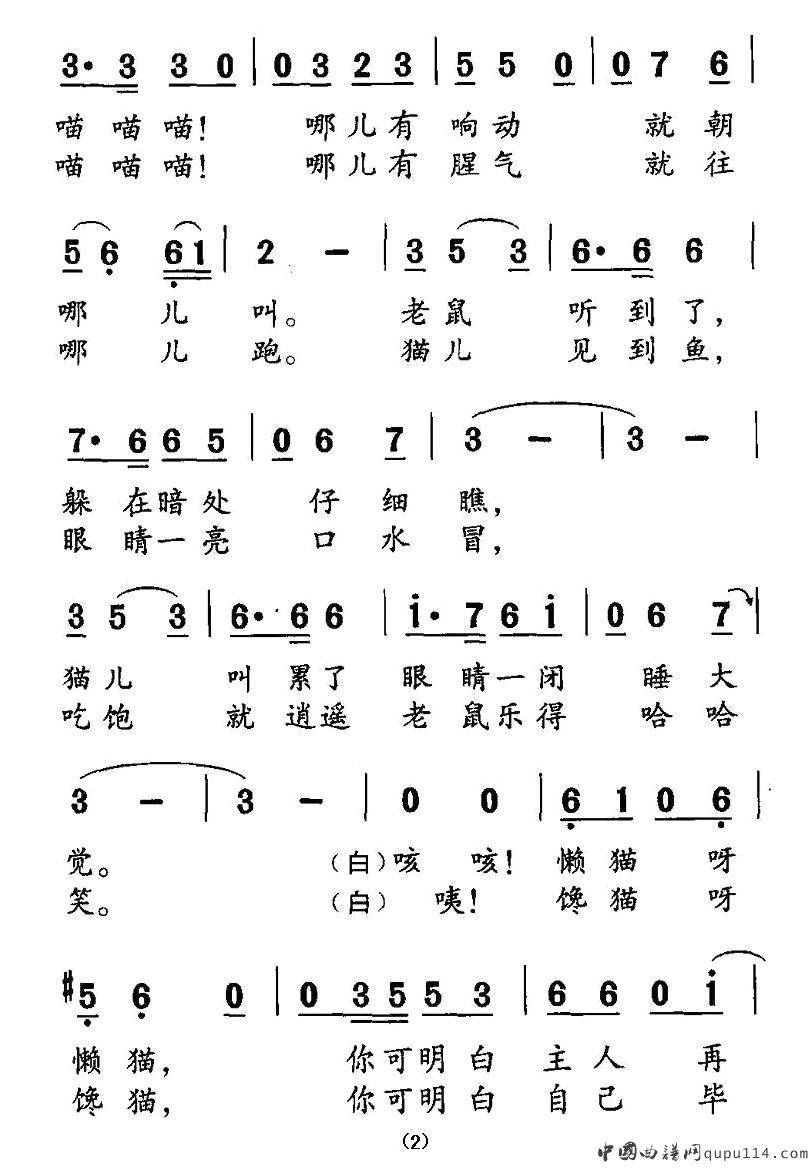 3· 3 3 0 | 0 3 2 3 | 5 5 0 | 0 7 6 |
喵 喵 喵! 哪 儿 有 响 动 就 朝
喵 喵 喵! 哪 儿 有 腥 气 就 往
5 6 6 1 | 2 - | 3 5 3 | 6· 6 6 |
哪 儿 叫。 老 鼠 听 到 了,
哪 儿 跑。 猫 儿 见 到 鱼,
7· 6 6 5 | 0 6 7 | 3 - | 3 - |
躲 在 暗 处 仔 细 瞧,
眼 睛 一 亮 口 水 冒,
3 5 3 | 6· 6 6 | i· 7 6 i | 0 6 7 |
猫 儿 叫 累 了 眼 睛 一 闭 睡 大
吃 饱 就 逍 遥 老 鼠 乐 得 哈 哈
3 - | 3 - | 0 0 | 6 1 0 6 |
觉。 (白) 咳 咳! 懒 猫 呀
笑。 (白) 咦! 馋 猫 呀
#5 6 0 | 0 3 5 5 3 | 6 6 0 i |
懒 猫, 你 可 明 白 主 人 再
馋 猫, 你 可 明 白 自 己 毕
(2)
中國曲譜网qupu114.com